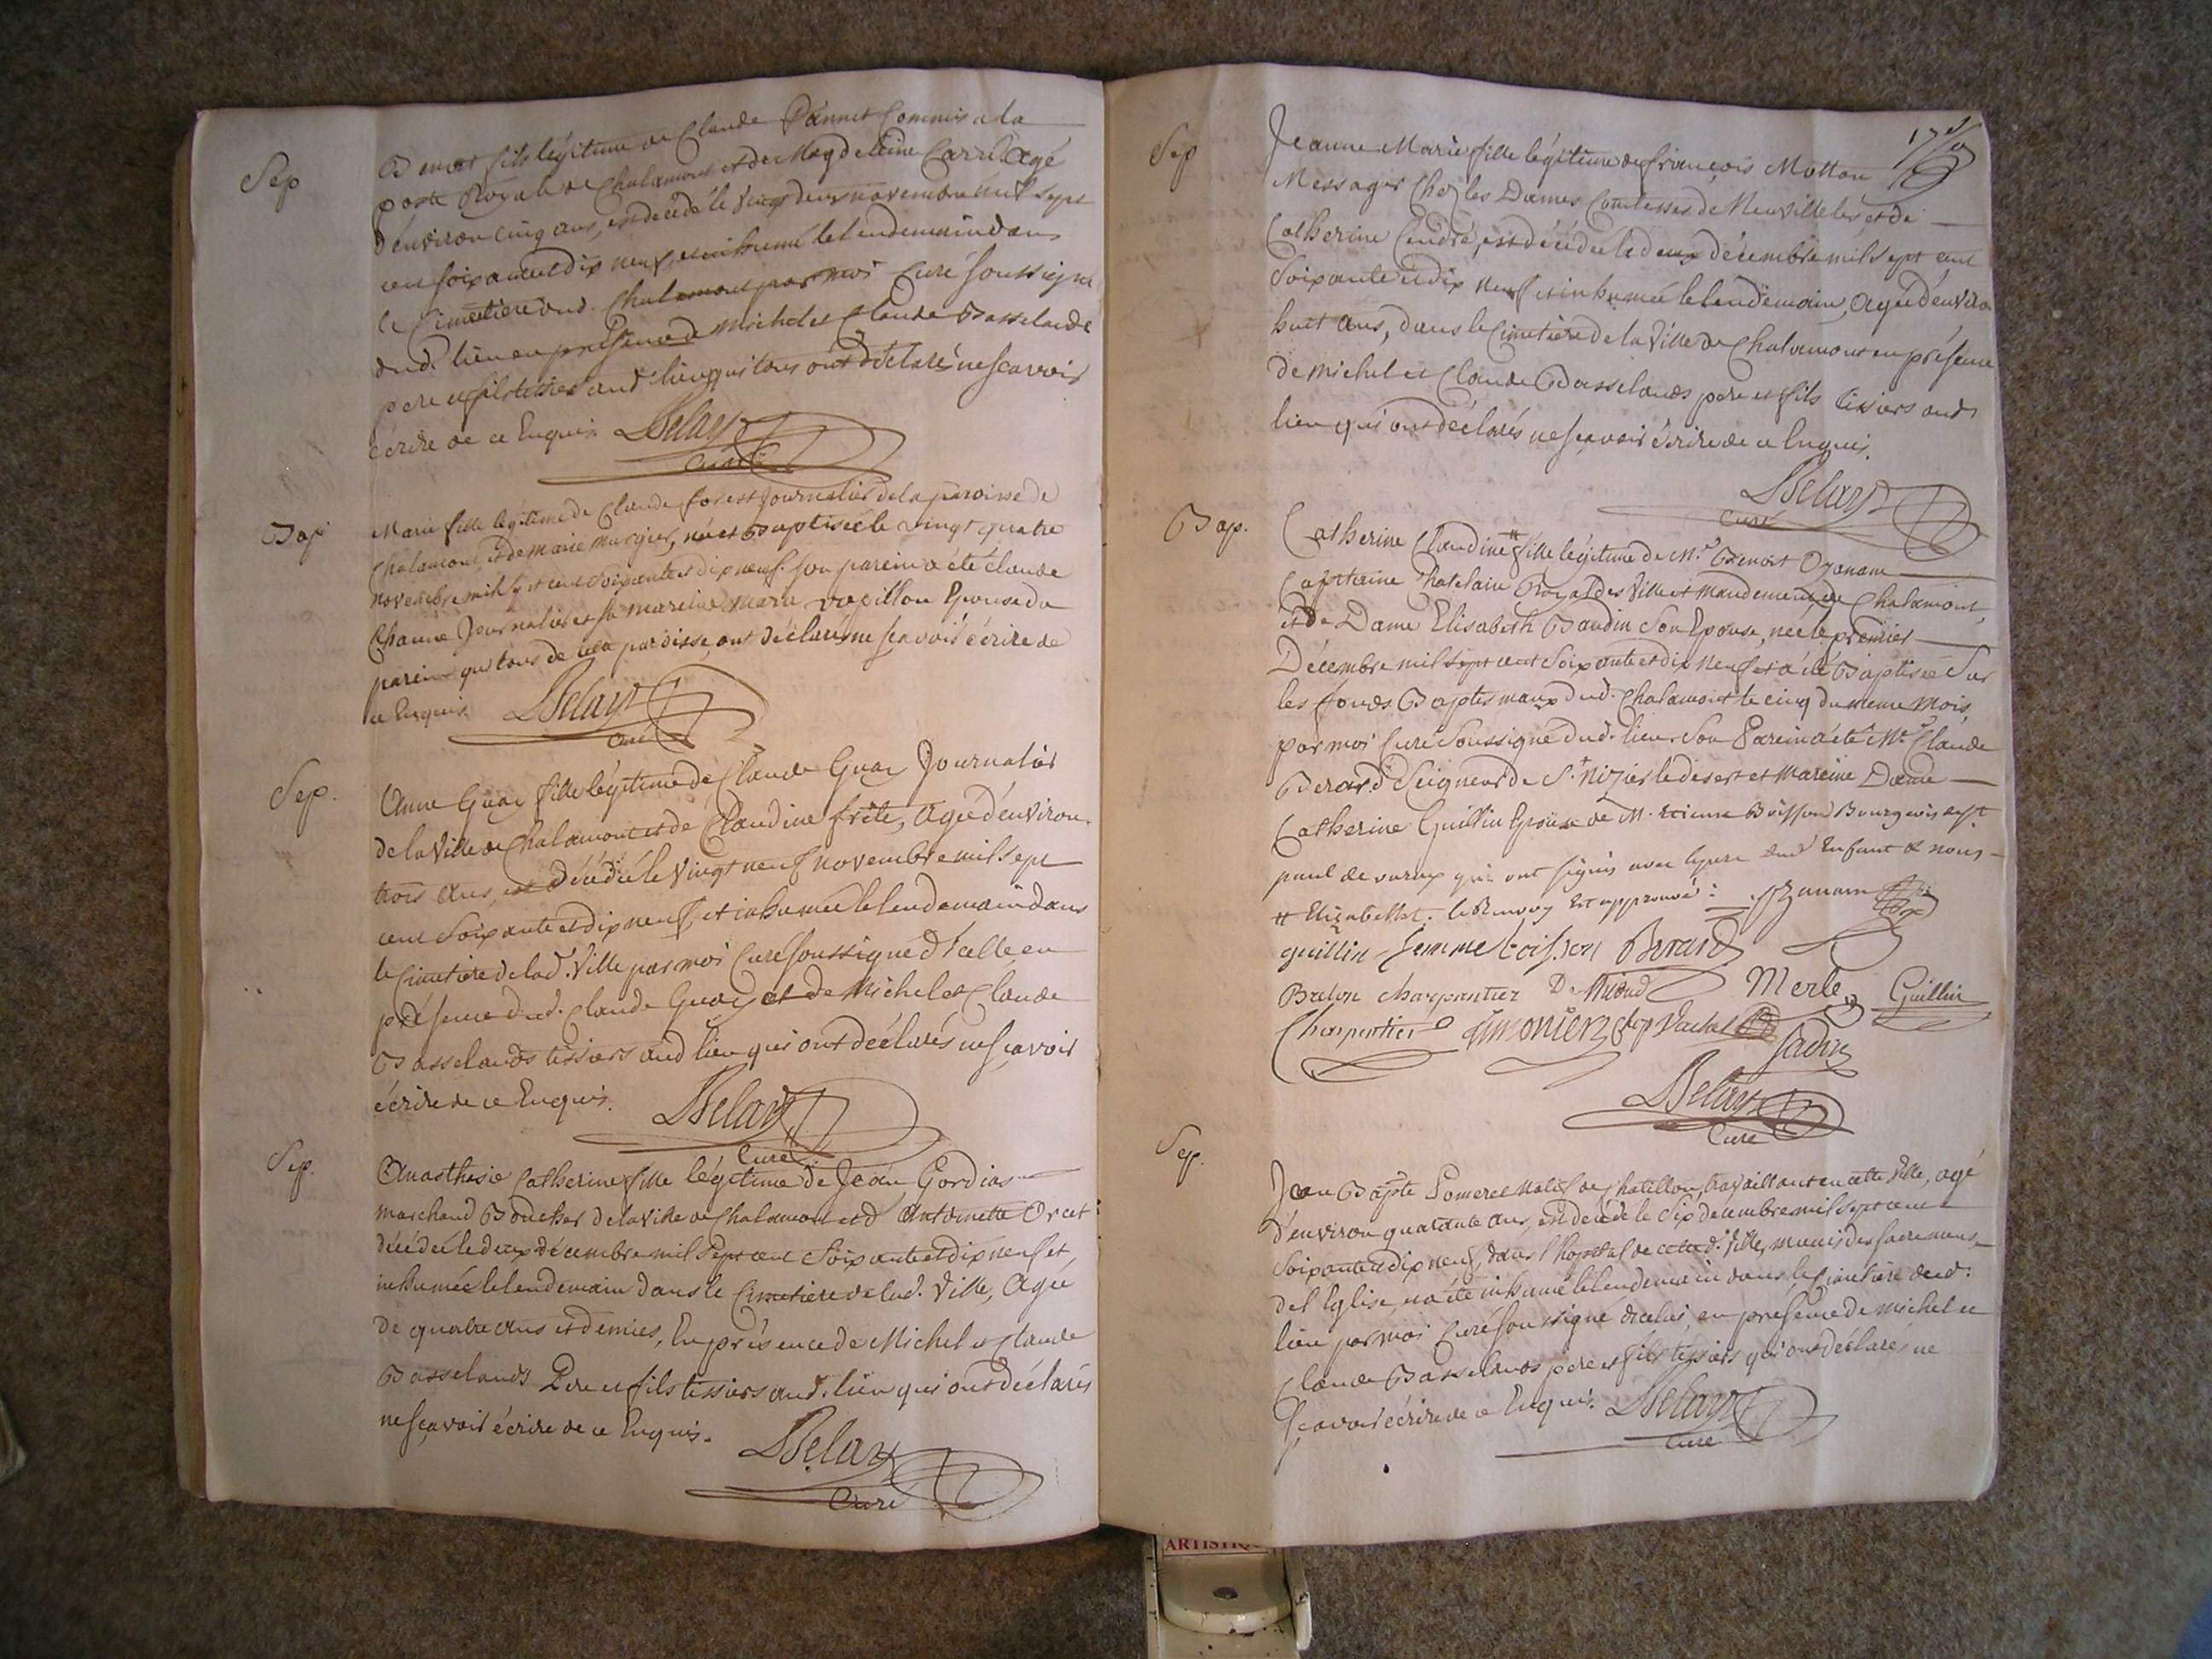 Sep
Benoit fils légitime de Claude Pannet Commis a la
poste Royale de Chalamont et de Magdeleine Carril agé
d'environ cinq ans, est decedé le vingt deux novembre mil sept
cent soixante et dix neuf, et inhumé le lendemain dans
le Cimetiere dud. Chalamont par moi Curé soussigné
dud. lieu en présence de Michel et Claude Basseland
pere et fils tissiers aud. lieu qui tous ont déclaré ne scavoir
écrire de ce Enquis. DeLay
Curé
Bap
Marie fille légitime de Claude forest Journalier de la paroisse de
Chalamont, et de marie murgier, née et Baptisée le vingt quatre
novembre mil sept cent soixante et dix neuf. son parein a été claude
Channe Journalier et sa mareine marie papillon Epouse du
parein qui tous de cette paroisse, ont déclarés ne scavoir écrire de
ce Enquis. DeLay
Curé
Sep.
Anne Guay fille légitime de Claude Guay Journalier
de la Ville de Chalamont et de Claudine frête, agée d'environ
trois ans, est décédée le vingt neuf novembre mil sept
cent soixante et dix neuf, et inhumée le lendemain dans
le Cimetiere de lad. Ville par moi Curé soussigné d'icelle en
présence dud. Claude Guay et de Michel et Claude
Basselands tissiers aud lieu qui ont déclarés ne sçavoir
écrire de ce Enquis. DeLay
Curé
Sep.
Anasthasie Catherine fille légitime de Jean Gordias
marchand Boucher de la Ville de Chalamont et d'Antoinette Orcet
décédée le deux décembre mil sept cent soixante et dix neuf et
inhumée le lendemain dans le Cimetiere de lad. Ville, Agée
de quatre ans et demies, En présence de Michel et Claude
Basselands Pere et fils tissiers aud. lieu qui ont déclarés
ne sçavoir écrire de ce Enquis. DeLay
Curé
Sep
Jeanne Marie fille légitime de françois Motton
Messager Chez les Dames Comtesses de Neuville les et de
Catherine Cendré, est décédée le deux décembre mil sept cent
soixante et dix neuf et inhumée le lendemain, agée d'environ
huit ans, dans le Cimetiere de la Ville de Chalamont en présence
de michel et Claude Basselands pere et fils tissiers aud.
lieu qui ont déclarés ne sçavoir écrire de ce Enquis.
DeLay
Curé
Bap.
Catherine Claudine # fille légitime de Mr. Benoit Ozanam
Capitaine Chatelain Royal des Ville et mandement de Chalamont,
et de Dame Elisabeth Baudin son Epouse, née le premier
Décembre mil sept cent soixante et dix neuf et a été Baptisée sur
les fonds Baptismaux dud. Chalamont le cinq du meme mois,
par moi Curé soussigné dud. lieu. Son Parein a été Mr. Claude
Berard Seigneur de St. Nizier le desert et Mareine Dame
Catherine Guillin Epouse de M. etienne Boisson Bourgeois a St.
paul de varax qui ont signés avec le pere dud Enfant & nous
# Elizabeth. le Renvoy Est approuvé: Ozanam
guillin femme boisson Berard
Breton charpentier Merle Guillin
Charpentier Simonier
DeLay
Curé
Sep.
Jean Bapte Pomerel natif de Chatillon, travaillant en cette Ville, agé
d'environ quarante ans, est decédé le six decembre mil sept cent
soixante et dix neuf, dans l'hopital de cette d. Ville, munis des sacremens
de l'Eglise, et a été inhumé le lendemain dans le Cimetiere dud.
lieu par moi Curé soussigné d'icelui, en présence de michel et
Claude Basselands pere et fils tissiers qui ont déclarés ne
sçavoir écrire de ce Enquis. DeLay
Curé
ARTISTIQ